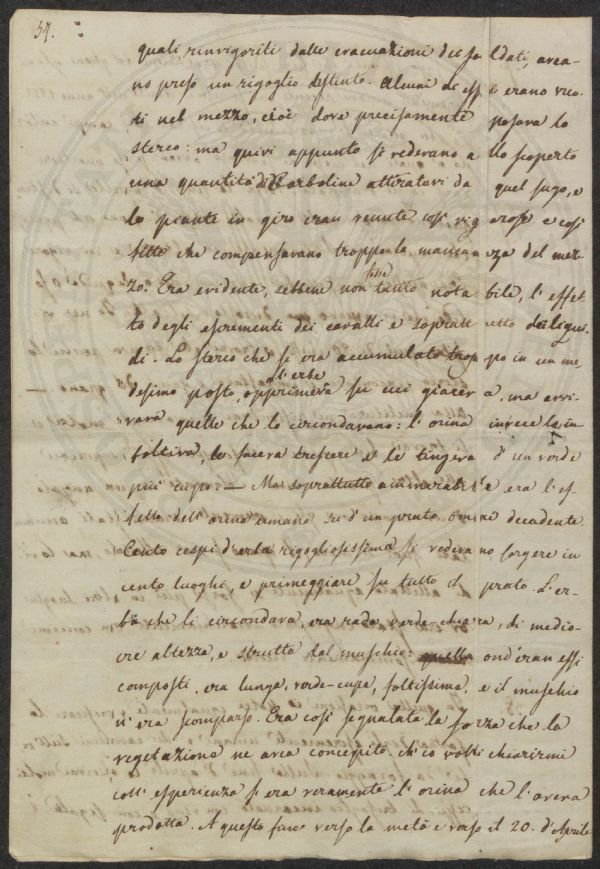 57.
quali, rinvigoriti dalle evacuazioni dei soldati, avea-
no preso un rigoglio distinto. Alcuni di essi erano vuo-
ti nel mezzo, cioè dove precisamente posava lo
sterco: ma quivi appunto si vedevano allo scoperto
una quantità di Carboline attratevi da quel sugo, e
le piante in giro eran venute così vigorose e così
fitte che compensavano troppo la mancanza del mez-
zo. Era evidente, sebbene non fosse tanto notabile, l'effet-
to degli escrementi dei cavalli e soprattutto dei liqui-
di. Lo sterco che si era accumulato troppo in un me-
desimo posto, opprimeva l'erbe su cui giaceva, ma avvi-
vava quelle che lo circondavano: l'orina invece le in-
foltiva, le faceva crescere e le tingeva d'un verde
più cupo. — Ma soprattutto ammirabile era l'ef-
fetto dell'orina umana su d'un prato omai decadente.
Cento cespi d'erba rigogliosissima si vedevano sorgere in
cento luoghi, e primeggiare su tutto il prato. L'er-
ba che li circondava, era rada, verde-chiara, di medio-
cre altezza, e strutta dal muschio: quella ond'eran essi
composti, era lunga, verde-cupa, foltissima, e il muschio
n'era scomparso. Era così segnalata la forza che la
vegetazione ne avea concepito, ch'io volli chiarirmi
coll'esperienza se era veramente l'orina che l'aveva
prodotta. A questo fine verso la metà e verso il 20. d'Aprile